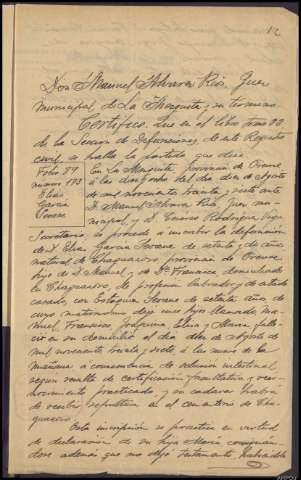 12
Don Manuel Rio, Juez
Municipal de La Mezquita y su término.
Certifico: Que en el libro tomo 22
de la Sección de Defunciones de este Registro
civil, se halla la partida que dice:
Folio 89
número 173
Elias
Garcia
Seoane
En La Mezquita provincia de Orense
a las del día de Agosto
de mil novecientos treinta y siete ante
D. Manuel Rio, Juez mu-
nicipal, y D. Rodriguez
Secretario se procede a inscribir la defunción
de D. Elias Garcia Seoane de setenta y de años
natural de Chaguazoso, provincia de Orense
hijo de D. Manuel y de Dª Francisca, domiciliado
en Chaguazoso, de profesión labrador y de estado
casado, con Seoane de setenta años, de
cuyo matrimonio deja cinco hijos llamados Ma-
nuel, Francisco, y Maria, falle-
ció en su domicilio el día diez de Agosto de
mil novecientos treinta y siete, a las de la
mañana a consecuencia de oclusión intestinal
según resulta de certificación facultativa y reco-
nocimiento practicado, y su cadáver habrá
de recibir sepultura en el cementerio de Cha-
guazoso.
Esta inscripción se practica en virtud
de declaración de su hija María consignán-
dose además que no dejó testamento, habiéndola